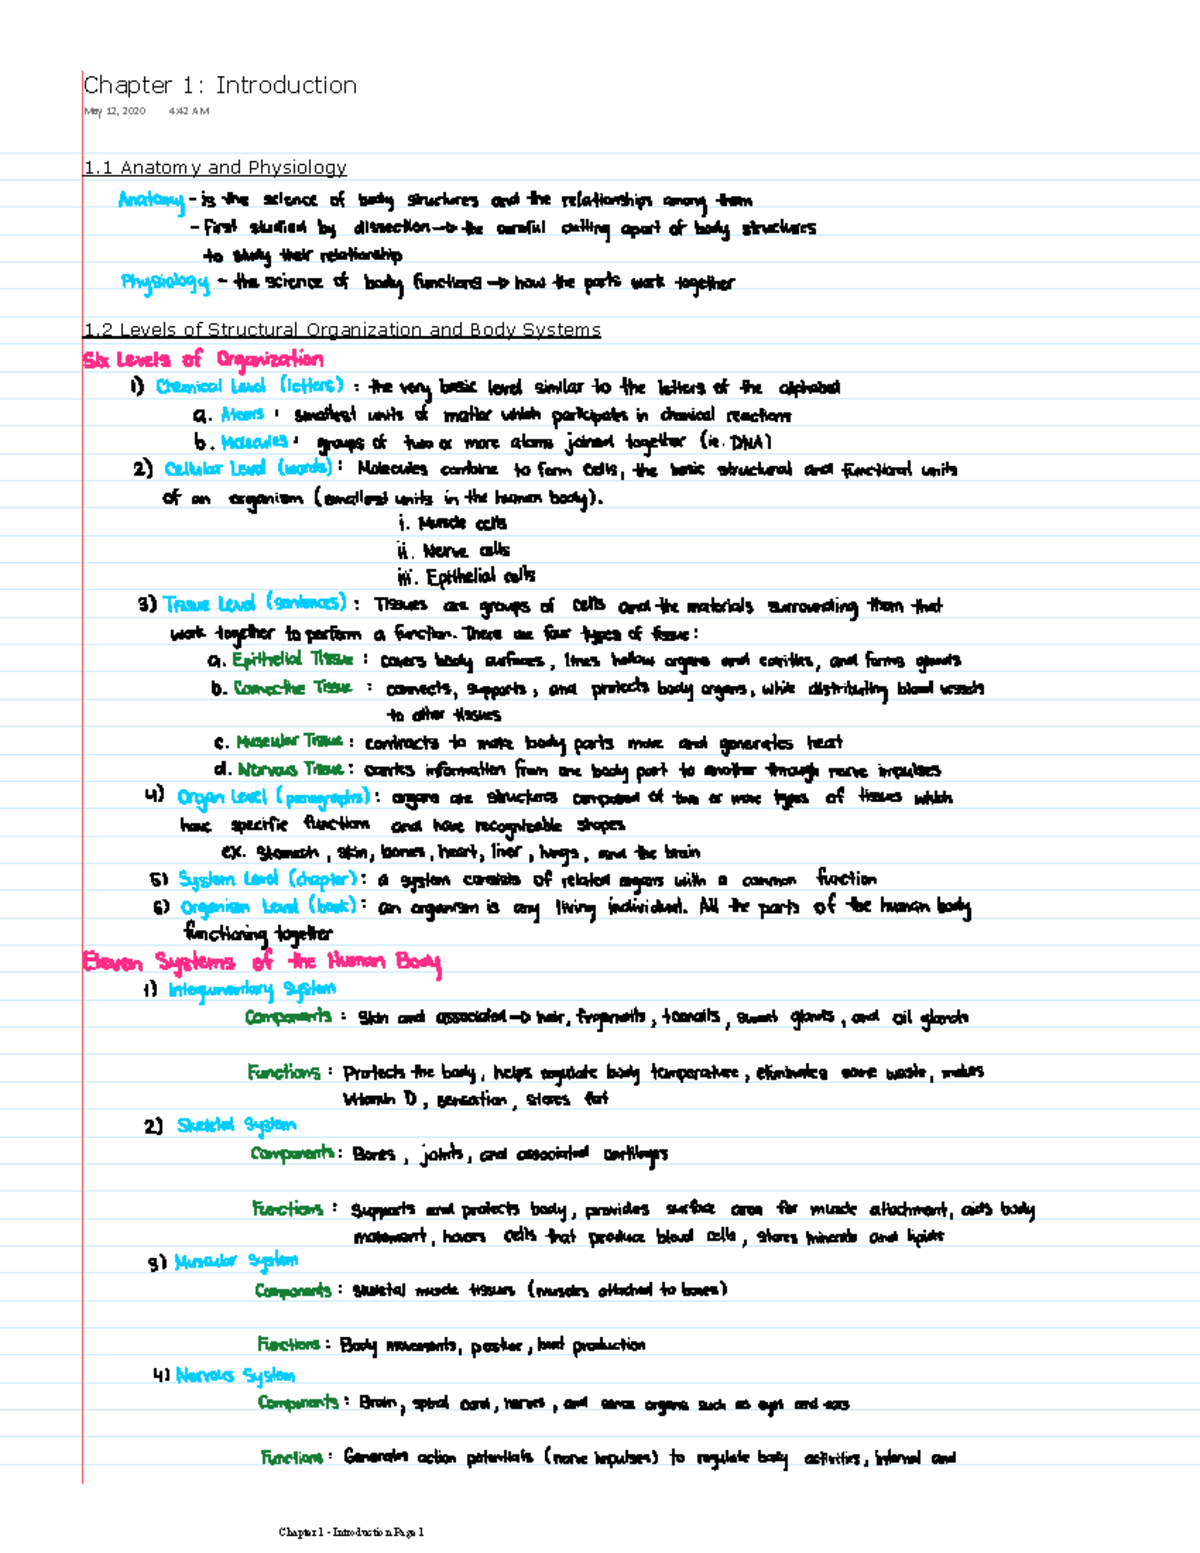 Chapter 1: Introduction
May 12, 2020 4:42 AM
1.1 Anatomy and Physiology
Anatomy - is the science of body structures and the relationships among them
- First studied by dissection → the careful cutting apart of body structures
to study their relationship
Physiology - the science of body functions → how the parts work together
1.2 Levels of Structural Organization and Body Systems
Six Levels of Organization
1) Chemical Level (letters) : the very basic level similar to the letters of the alphabet
a. Atoms : smallest units of matter which participates in chemical reactions
b. Molecules : groups of two or more atoms joined together (ie. DNA)
2) Cellular Level (words) : Molecules combine to form cells, the basic structural and functional units
of an organism (smallest units in the human body).
i. Muscle cells
ii. Nerve cells
iii. Epithelial cells
3) Tissue Level (sentences) : Tissues are groups of cells and the materials surrounding them that
work together to perform a function. There are four types of tissue :
a. Epithelial Tissue : covers body surfaces, lines hollow organs and cavities, and forms glands
b. Connective Tissue : connects, supports, and protects body organs, while distributing blood vessels
to other tissues
c. Muscular Tissue : contracts to make body parts move and generates heat
d. Nervous Tissue : carries information from one body part to another through nerve impulses
4) Organ Level (paragraphs) : organs are structures composed of two or more types of tissues which
have specific functions and have recognizable shapes
ex. Stomach, skin, bones, heart, liver, lungs, and the brain
5) System Level (chapter) : a system consists of related organs with a common function
6) Organism Level (book) : an organism is any living individual. All the parts of the human body
functioning together
Eleven Systems of the Human Body
1) Integumentary System
Components : Skin and associated → hair, fingernails, toenails, sweat glands, and oil glands
Functions : Protects the body, helps regulate body temperature, eliminates some waste, makes
Vitamin D, sensation, stores fat
2) Skeletal System
Components : Bones, joints, and associated cartilages
Functions : Supports and protects body, provides surface area for muscle attachment, aids body
movement, houses cells that produce blood cells, stores minerals and lipids
3) Muscular System
Components : Skeletal muscle tissues (muscles attached to bones)
Functions : Body movements, posture, heat production
4) Nervous System
Components : Brain, spinal cord, nerves, and sense organs such as eyes and ears
Functions : Generates action potentials (nerve impulses) to regulate body activities, internal and
Chapter 1 - Introduction Page 1